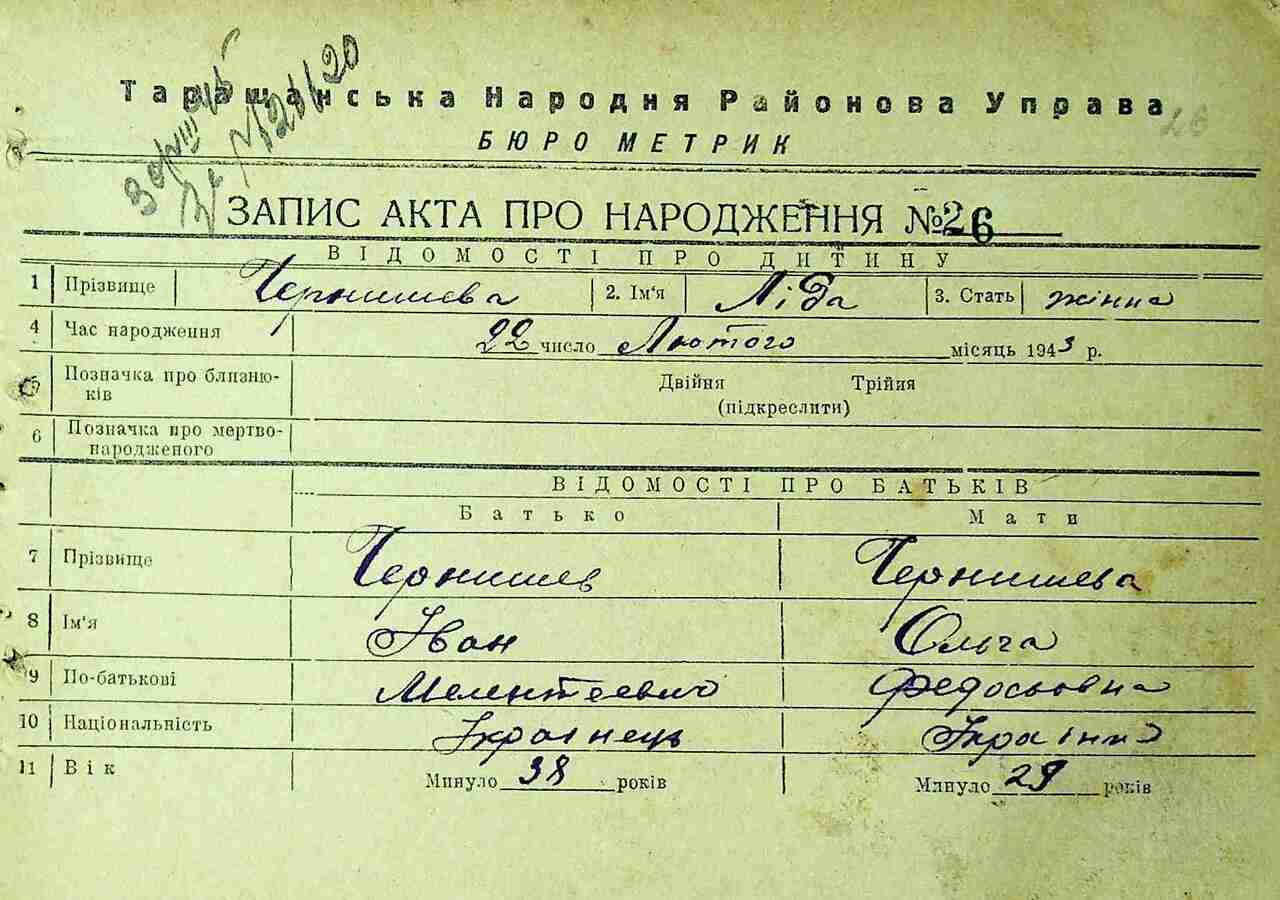 Таращанська Народня Районова Управа
26
БЮРО МЕТРИК
ЗАПИС АКТА ПРО НАРОДЖЕННЯ №26
ВІДОМОСТІ ПРО ДИТИНУ
1 Прізвище Чернишева 2. Ім'я Ліда 3. Стать жінка
4 Час народження 22 число Лютого місяць 1943 р.
5 Позначка про близню-
ків Двійня Трійня
(підкреслити)
6 Позначка про мертво-
народженого
ВІДОМОСТІ ПРО БАТЬКІВ
Батько Мати
7 Прізвище Чернишев Чернишева
8 Ім'я Іван Ольга
9 По-батькові Мелентеевич Федосьовна
10 Національність Українець Українка
11 Вік Минуло 38 років Минуло 29 років